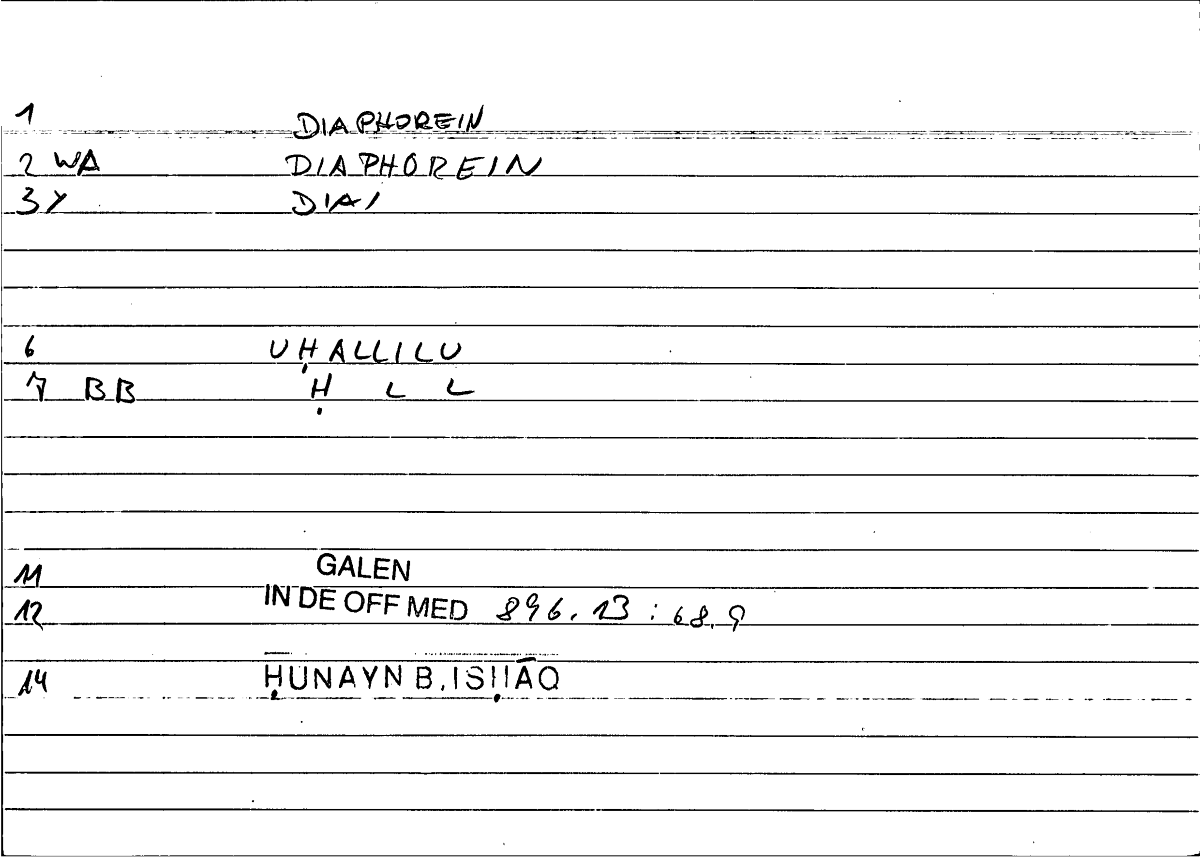 1 DIAPHOREIN
2 WA DIAPHOREIN
3 Y DIA/
6 UḤALLILU
7 BB Ḥ L L
11 GALEN
12 IN DE OFF MED 896.13 : 68.9
14 ḤUNAYN B. ISḤĀQ